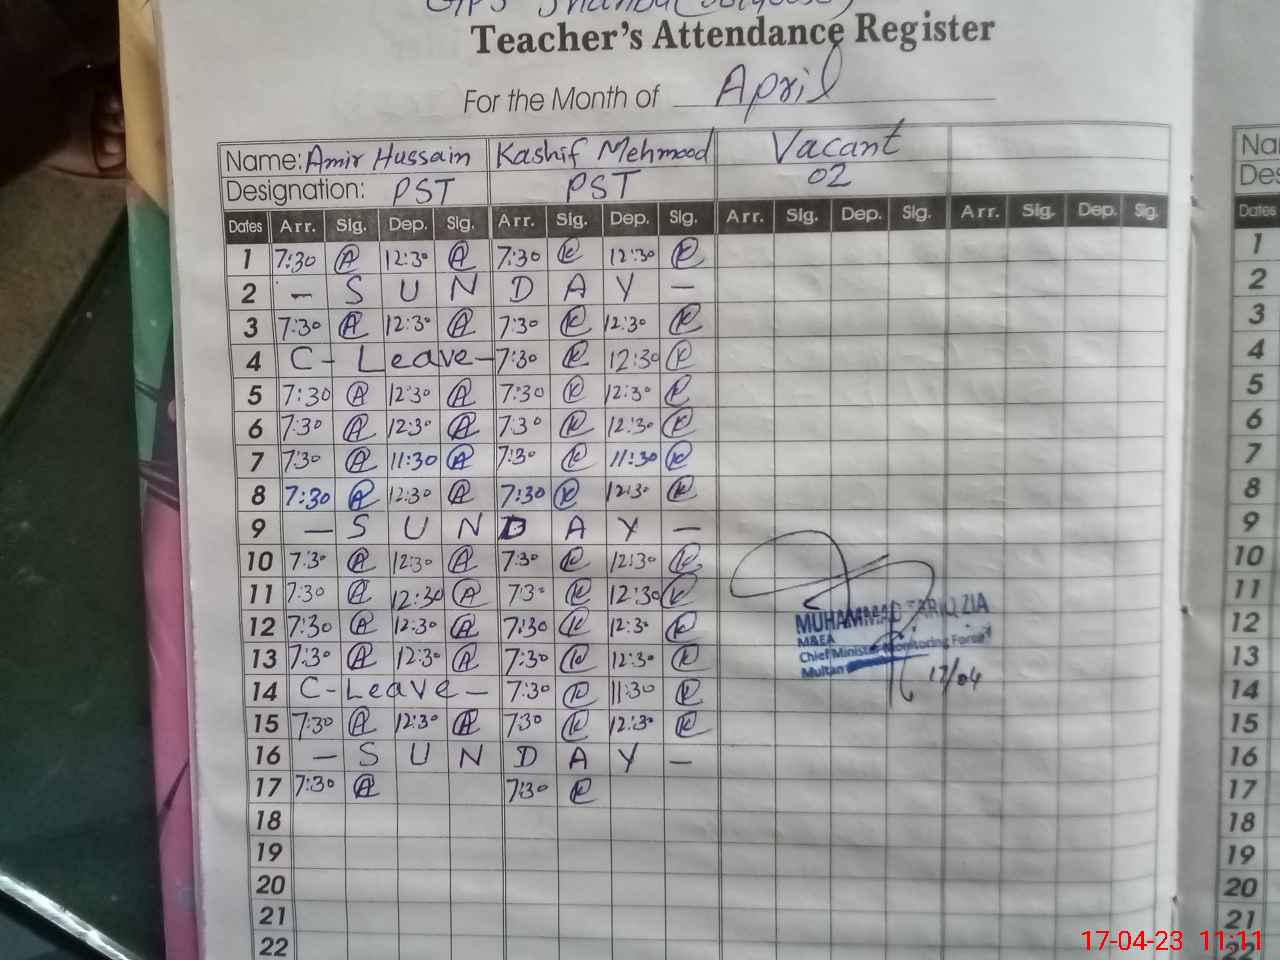 GPS
Teacher's Attendance Register
For the Month of April
Name: Amir Hussain Kashif Mehmood Vacant
Designation: PST PST 02
Dates Arr. Sig. Dep. Sig. Arr. Sig. Dep. Sig. Arr. Sig. Dep. Sig. Arr. Sig. Dep. Sig.
1 7:30 A 12:30 A 7:30 K 12:30 K
2 - S U N D A Y -
3 7:30 A 12:30 A 7:30 K 12:30 K
4 C - Leave - 7:30 K 12:30 K
5 7:30 A 12:30 A 7:30 K 12:30 K
6 7:30 A 12:30 A 7:30 K 12:30 K
7 7:30 A 11:30 A 7:30 K 11:30 K
8 7:30 A 12:30 A 7:30 K 12:30 K
9 - S U N D A Y -
10 7:30 A 12:30 A 7:30 K 12:30 K
11 7:30 A 12:30 A 7:30 K 12:30 K
12 7:30 A 12:30 A 7:30 K 12:30 K
13 7:30 A 12:30 A 7:30 K 12:30 K
14 C - Leave - 7:30 K 11:30 K
15 7:30 A 12:30 A 7:30 K 12:30 K
16 - S U N D A Y -
17 7:30 A 7:30 K
18
19
20
21
22
MUHAMMAD TARIQ ZIA
M&EA
Chief Minister Monitoring Force
Multan
17/04
Na
Des
Dates
1
2
3
4
5
6
7
8
9
10
11
12
13
14
15
16
17
18
19
20
21
22
17-04-23 11:11